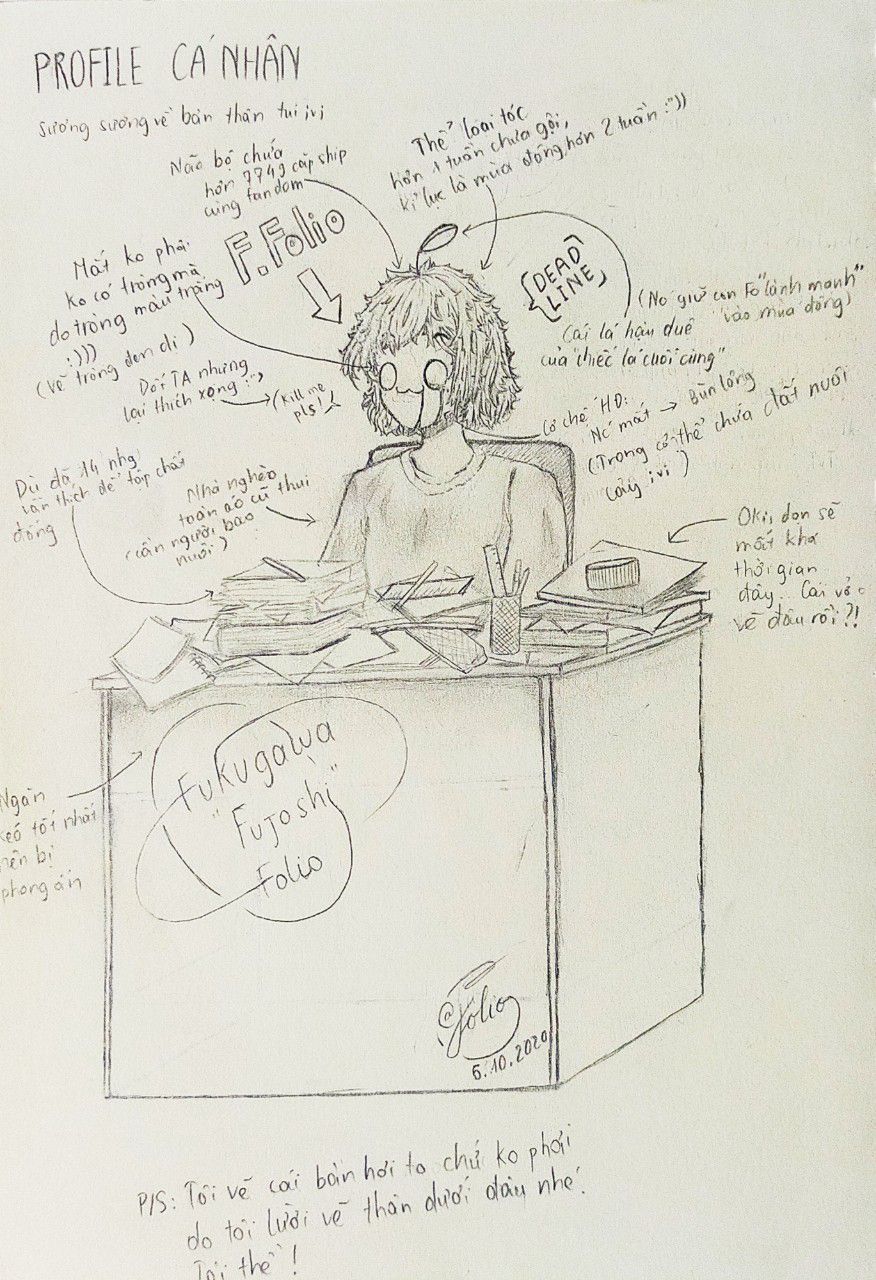 PROFILE CÁ NHÂN
Sương sương về bản thân tui ;v;
Não bộ chứa
hơn 7749 cặp ship
cùng fandom
Thể loại tóc
hơn 1 tuần chưa gội,
kỉ lục là mùa đông, hơn 2 tuần :"))
F.Folio
Mắt ko phải
ko có tròng mà
do tròng màu trắng
:)))
(vẽ tròng đen đi)
DEAD
LINE
(Nó giữ con Fo "lành mạnh"
vào mùa đông)
Cái lá hậu duệ
của "chiếc lá cuối cùng"
Dốt TA nhưng
lại thích xọng :",
(kill me
pls)
Cơ chế HĐ:
Nó mất → Bùn lỏng
(Trong cơ thể chứa đất nuôi
cây ;v;)
Dù đã 14 nhg
vẫn thích để táp chất
đống
Nhà nghèo
toàn áo cũ thui
(cần người bao
nuôi)
Oki, dọn sẽ
mất khá
thời gian
đây... Cái vở
vẽ đâu rồi?!
Ngăn
kéo tốt nhất
nên bị
phong ấn
Fukugawa
"Fujoshi"
Folio
@Folio
6.10.2020
P/S: Tôi vẽ cái bàn hơi to chứ ko phải
do tôi lười vẽ thân dưới đâu nhé.
Tôi thề!